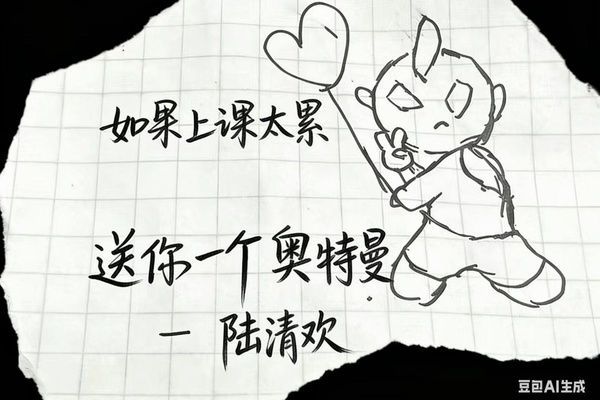 如果上课太累
送你一个奥特曼
— 陆清欢
豆包AI生成